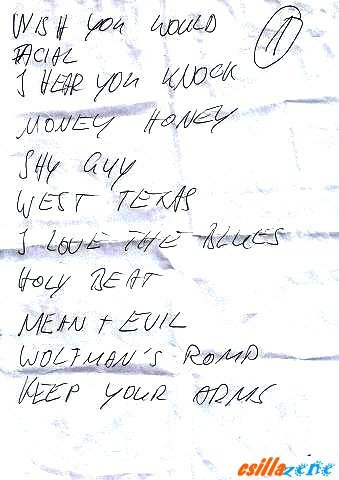 WISH YOU WOULD
FACIAL
I HEAR YOU KNOCK
1
MONEY HONEY
SHY GUY
WEST TEXAS
I LOVE THE BLUES
HOLY BEAT
MEAN + EVIL
WOLFMAN'S ROMP
KEEP YOUR ARMS
csillazene